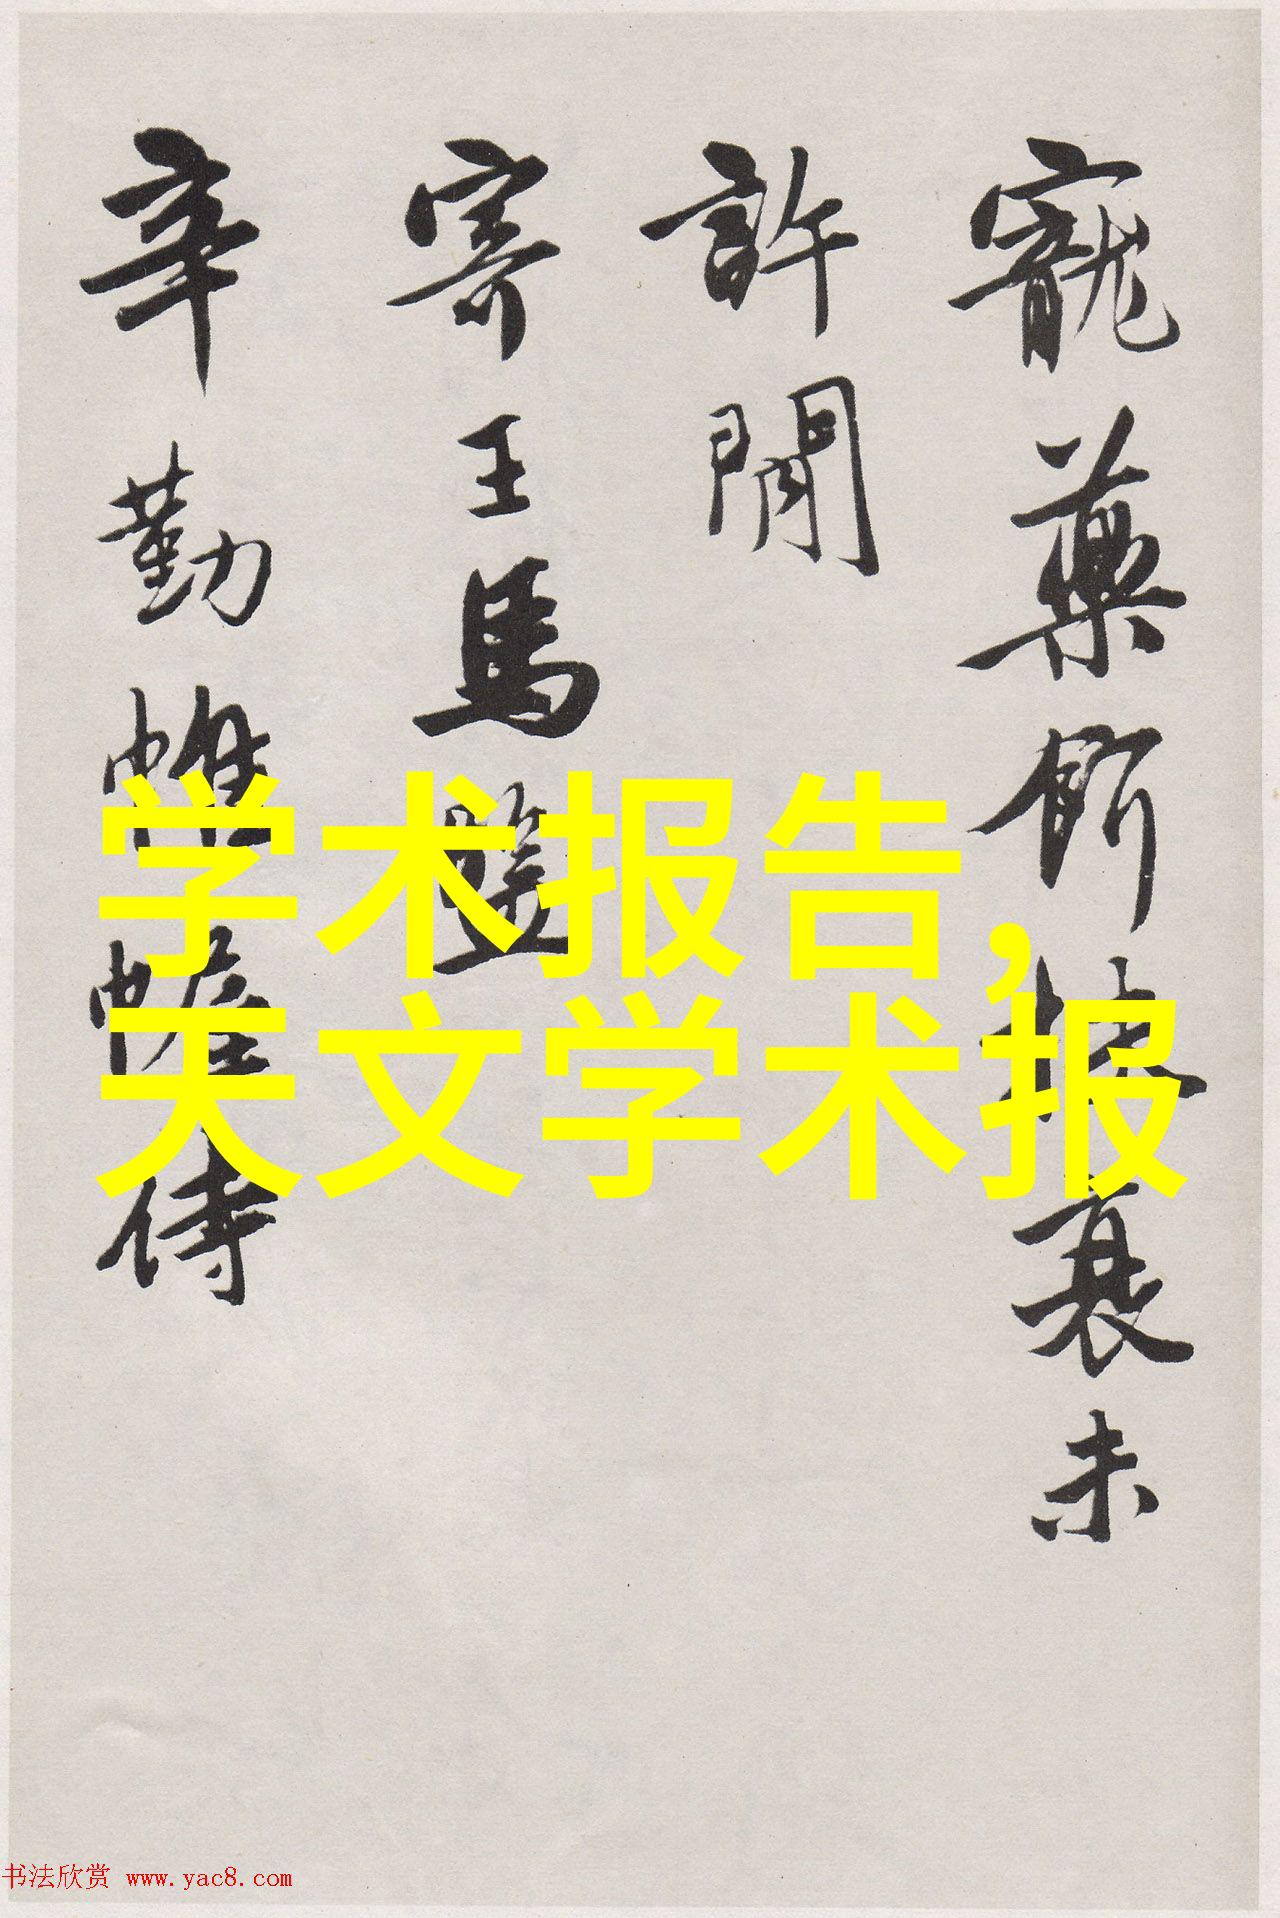 寵藥餌扶衰未
許閒
寄王馬
辛勤帷侍
学术报告,
天文学术报
书法欣赏 www.yac8.com